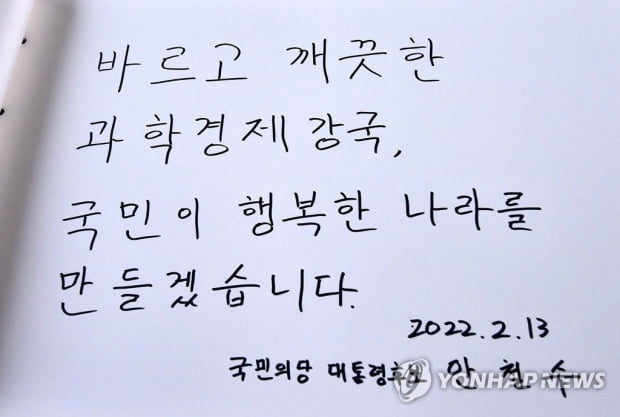 바르고 깨끗한
과학경제강국,
국민이 행복한 나라를
만들겠습니다.
2022.2.13
국민의당 대통령후보 안철수
YONHAP NEWS